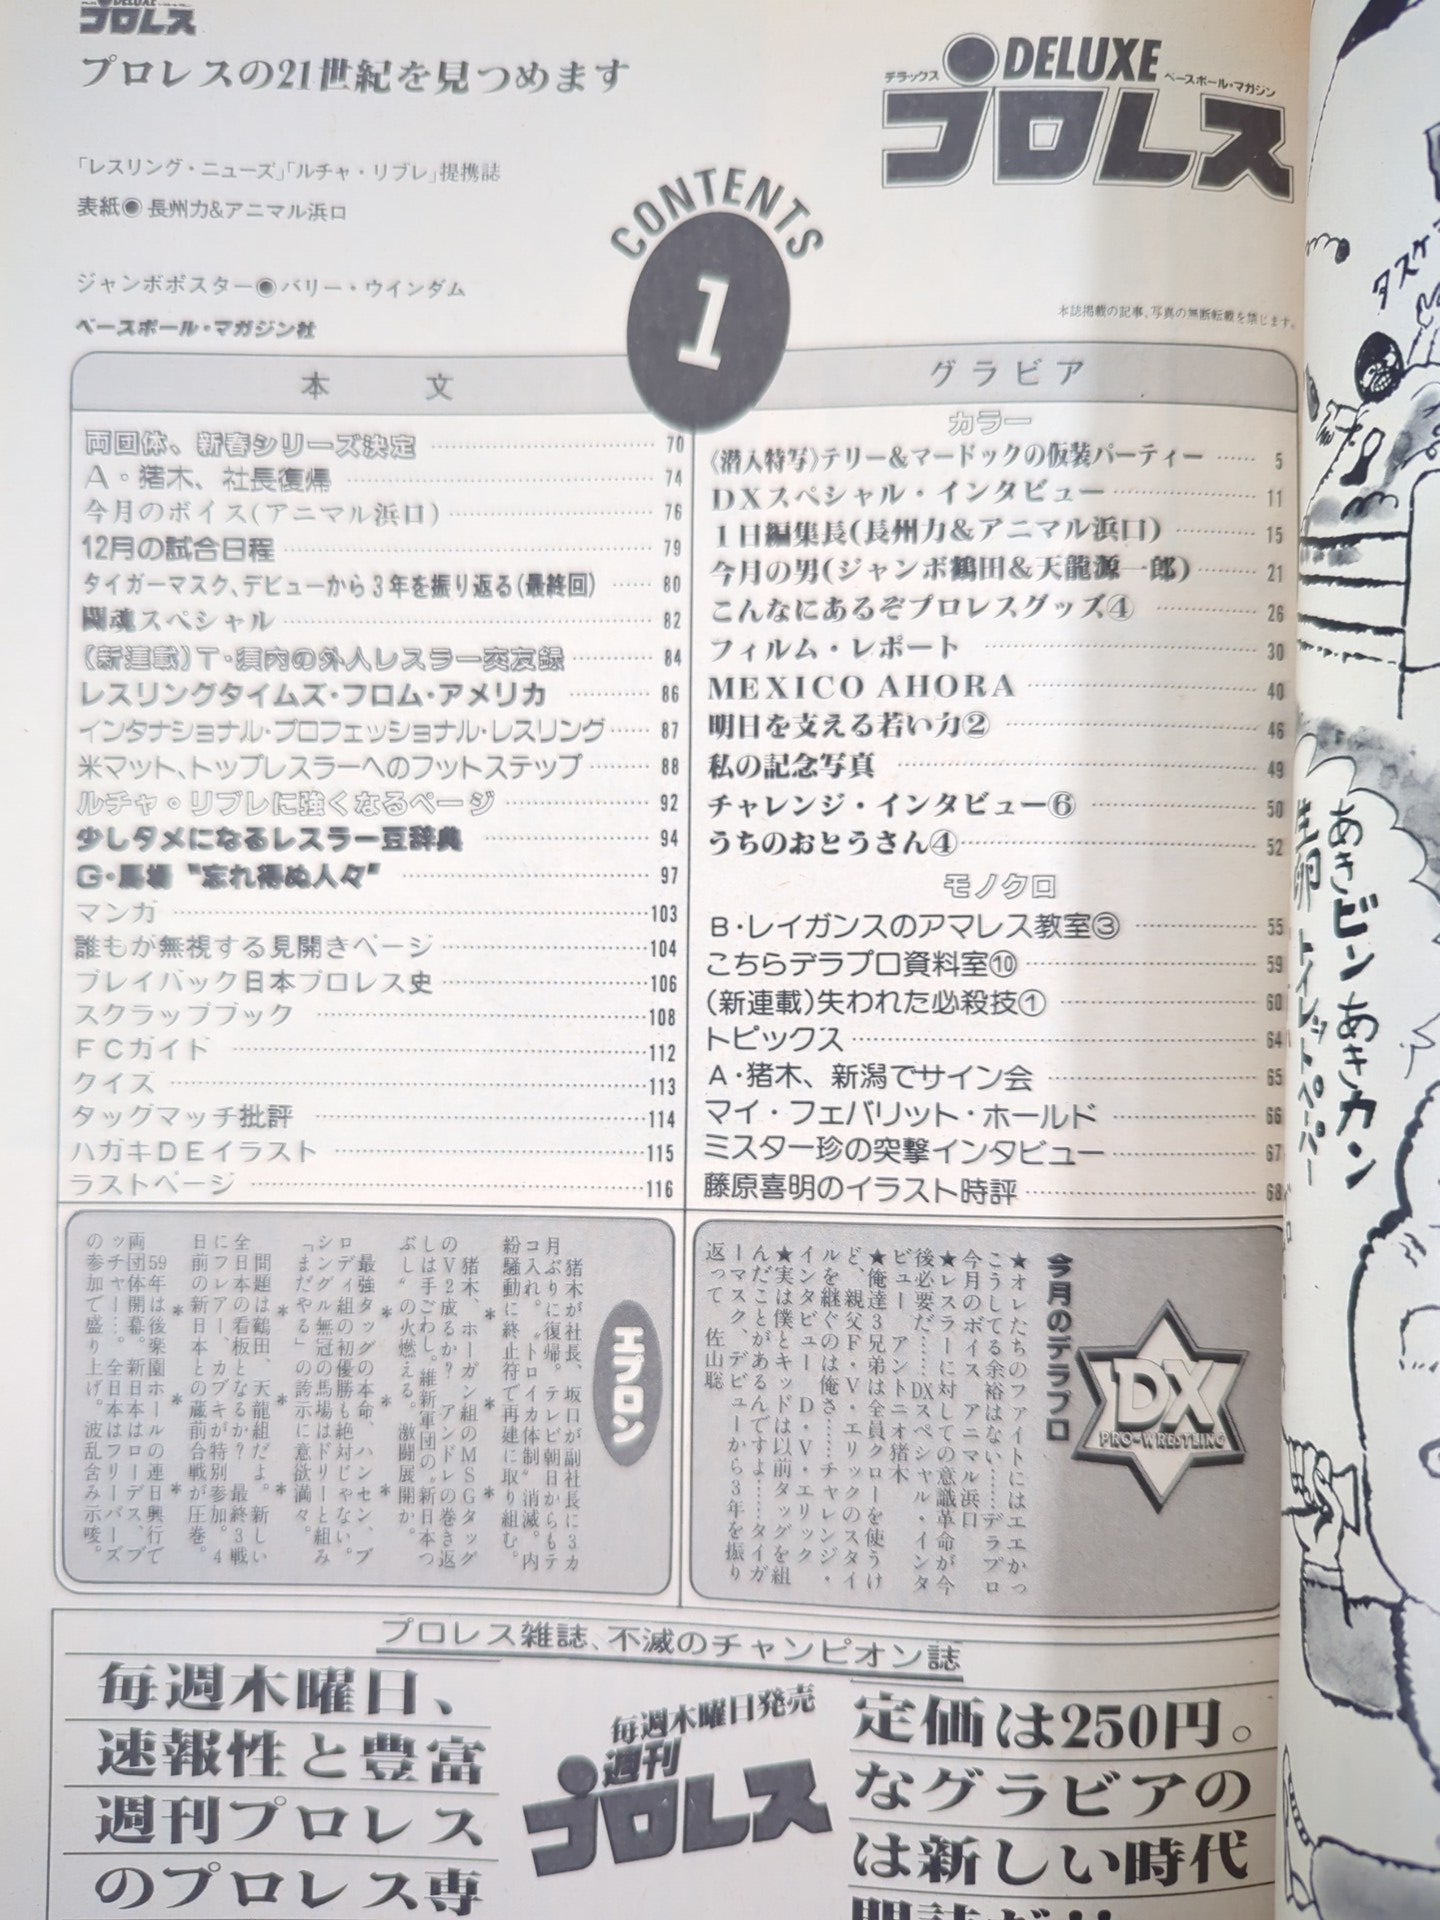 DELUXE
プロレス
プロレスの21世紀を見つめます
「レスリング・ニューズ」「ルチャ・リブレ」提携誌
表紙◉長州力&アニマル浜口
ジャンボポスター◉バリー・ウインダム
ベースボール・マガジン社
デラックス
DELUXE
ベースボール・マガジン
プロレス
CONTENTS
1
本誌掲載の記事、写真の無断転載を禁じます。
本文
両団体、新春シリーズ決定 …… 70
A・猪木、社長復帰 …… 74
今月のボイス(アニマル浜口) …… 76
12月の試合日程 …… 79
タイガーマスク、デビューから3年を振り返る(最終回) …… 80
闘魂スペシャル …… 82
(新連載)T・須内の外人レスラー交友録 …… 84
レスリングタイムズ・フロム・アメリカ …… 86
インタナショナル・プロフェッショナル・レスリング …… 87
米マット、トップレスラーへのフットステップ …… 88
ルチャ・リブレに強くなるページ …… 92
少しタメになるレスラー豆辞典 …… 94
G・馬場〝忘れ得ぬ人々〞 …… 97
マンガ …… 103
誰もが無視する見開きページ …… 104
プレイバック日本プロレス史 …… 106
スクラップブック …… 108
FCガイド …… 112
クイズ …… 113
タッグマッチ批評 …… 114
ハガキDEイラスト …… 115
ラストページ …… 116
グラビア
カラー
《潜入特写》テリー&マードックの仮装パーティー …… 5
DXスペシャル・インタビュー …… 11
1日編集長(長州力&アニマル浜口) …… 15
今月の男(ジャンボ鶴田&天龍源一郎) …… 21
こんなにあるぞプロレスグッズ④ …… 26
フィルム・レポート …… 30
MEXICO AHORA …… 40
明日を支える若い力② …… 46
私の記念写真 …… 49
チャレンジ・インタビュー⑥ …… 50
うちのおとうさん④ …… 52
モノクロ
B・レイガンスのアマレス教室③ …… 55
こちらデラプロ資料室⑩ …… 59
(新連載)失われた必殺技① …… 60
トピックス …… 64
A・猪木、新潟でサイン会 …… 65
マイ・フェバリット・ホールド …… 66
ミスター珍の突撃インタビュー …… 67
藤原喜明のイラスト時評 …… 68
エプロン
猪木が社長、坂口が副社長に3カ
月ぶりに復帰。テレビ朝日からもテ
コ入れ。〝トロイカ体制〞消滅。内
紛騒動に終止符で再建に取り組む。
＊ ＊
猪木、ホーガン組のMSGタッグ
のV2成るか？ アンドレの巻き返
しは手ごわし。維新軍団の〝新日本つ
ぶし〞の火燃える。激闘展開か。
＊ ＊ ＊
最強タッグの本命、ハンセン、ブ
ロディ組の初優勝も絶対じゃない。
シングル無冠の馬場はドリーと組み
「まだやる」の誇示に意欲満々。
＊ ＊ ＊
問題は鶴田、天龍組だよ。新しい
全日本の看板となるか？ 最終3戦
にフレアー、カブキが特別参加。4
日前の新日本との蔵前合戦が圧巻。
＊ ＊ ＊
59年は後楽園ホールの連日興行で
両団体開幕。新日本はローデス、ブ
ッチャー…。全日本はフリーバーズ
の参加で盛り上げ。波乱含み示唆。
DX
PRO-WRESTLING
今月のデラプロ
★オレたちのファイトにはエエかっ
こうしてる余裕はない……デラプロ
今月のボイス アニマル浜口
★レスラーに対しての意識革命が今
後必要だ……DXスペシャル・インタ
ビュー アントニオ猪木
★俺達3兄弟は全員クローを使うけ
ど、親父F・V・エリックのスタイ
ルを継ぐのは俺さ……チャレンジ・
インタビュー D・V・エリック
★実は僕とキッドは以前タッグを組
んだことがあるんですよ……タイガ
ーマスク、デビューから3年を振り
返って 佐山聡
プロレス雑誌、不滅のチャンピオン誌
毎週木曜日、
速報性と豊富
週刊プロレス
のプロレス専
毎週木曜日発売
週刊
プロレス
定価は250円。
なグラビアの
は新しい時代
あきビン あきカン
生卵 トイレットペーパー